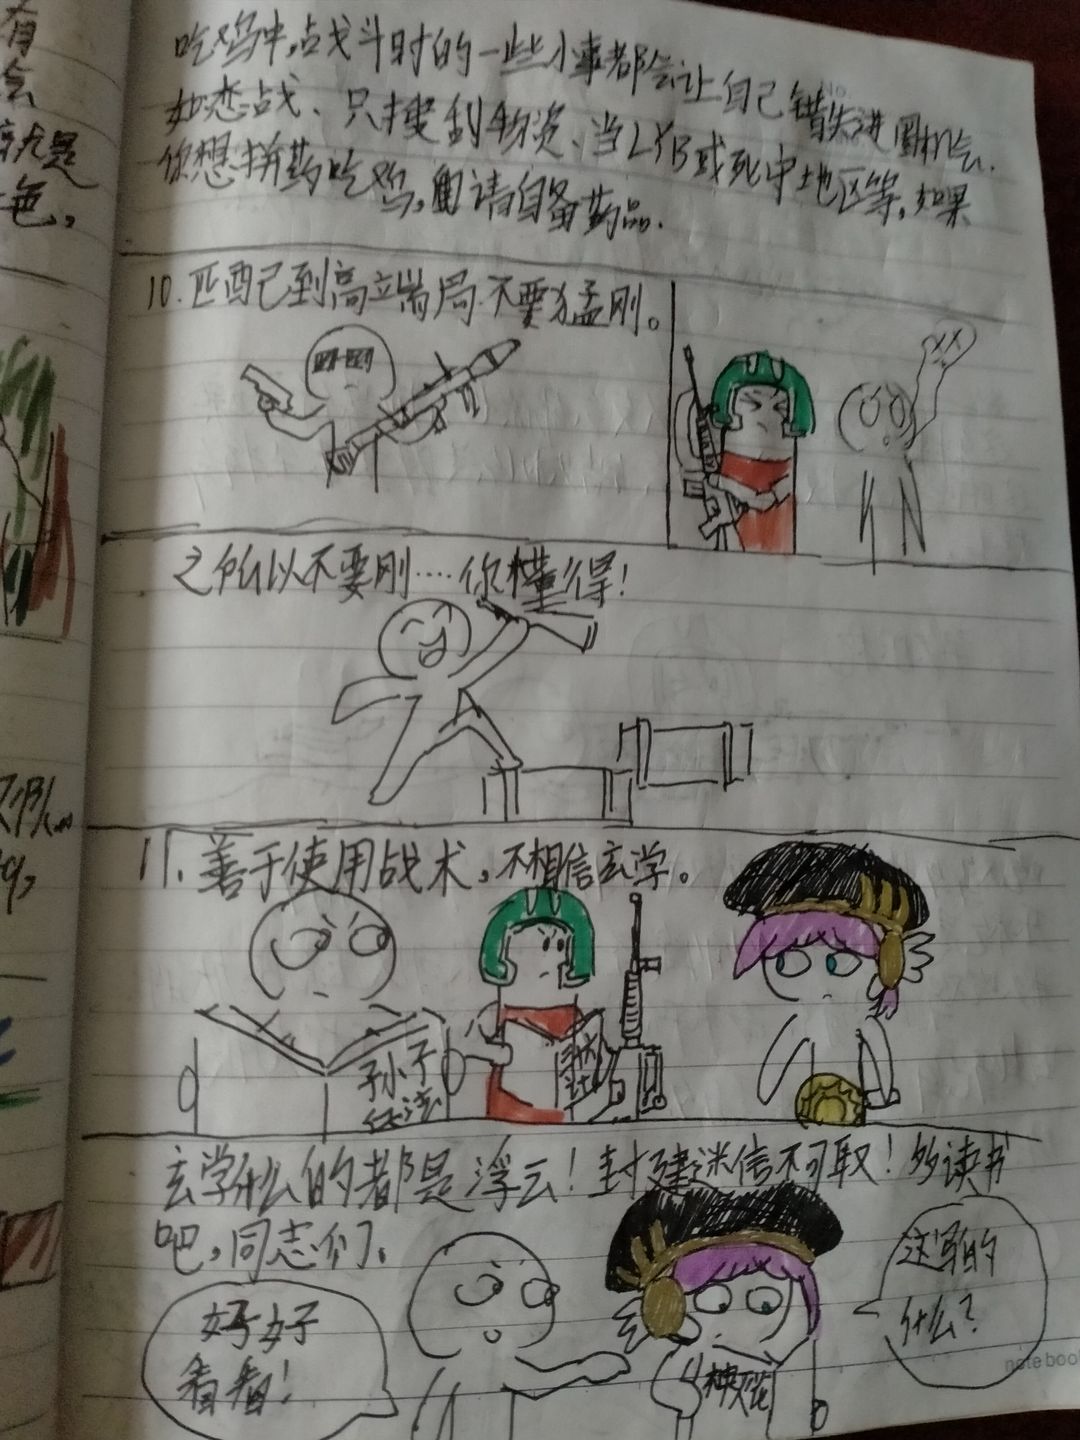 吃鸡中,战斗时的一些小事都会让自己错失进圈机会.
如恋战、只搜刮物资、当LYB或死守地区等,如果
你想拼药吃鸡,请自备药品.
10.匹配己到高端局.不要猛刚。
之所以不要刚····你懂得!
11.善于使用战术,不相信玄学。
孙子
兵法
玄学什么的都是浮云!封建迷信不可取!多读书
吧,同志们。
好好
看看!
这写的
什么?
note book
No.
有
会
就是
色,